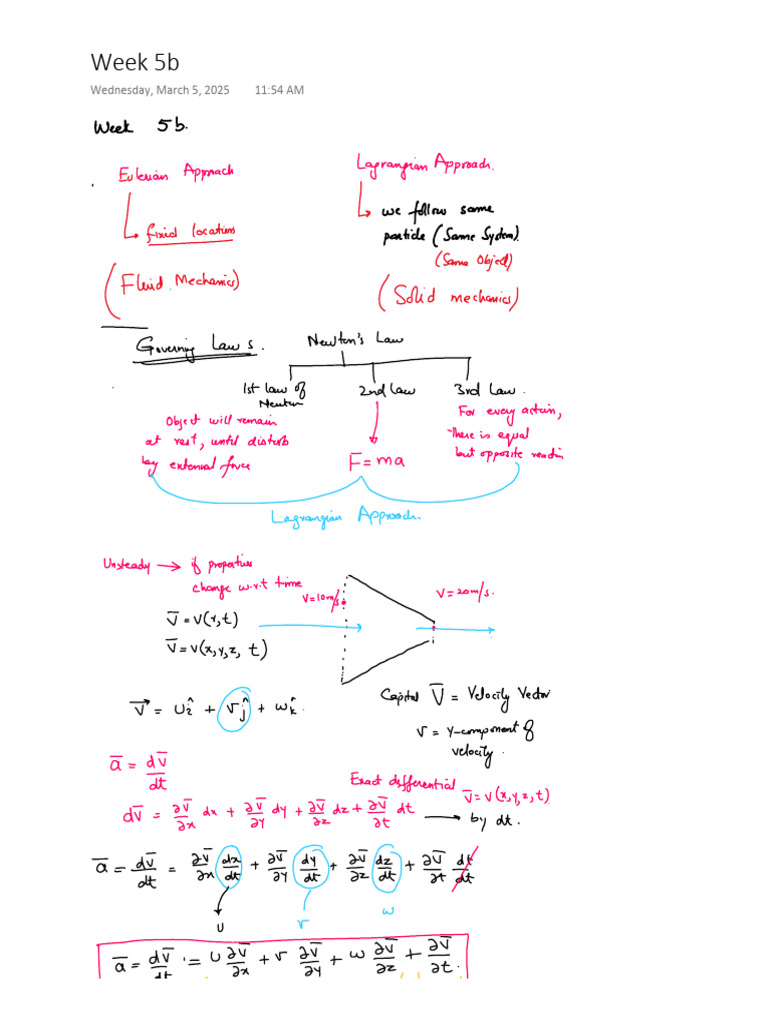 Week 5b
Wednesday, March 5, 2025 11:54 AM
Week 5b.
Eulerian Approach
fixed location
(Fluid Mechanics)
Lagrangian Approach.
we follow same
particle (Same System).
(Same Object)
(Solid mechanics)
Governing Laws.
Newton's Law
1st law of
Newton
2nd Law
3rd Law.
Object will remain
at rest, until disturb
by external force
F̅ = ma
For every action,
There is equal
but opposite reaction
Lagrangian Approach.
Unsteady → if properties
change w.r.t time
V̅ = V(r,t)
V̅ = V(x,y,z, t)
V=10m/s
V=20m/s.
V⃗ = uî + vĵ + wk̂.
Capital V̅ = Velocity Vector
v = y-component of
velocity.
a̅ = dV̅/dt
Exact differential V̅ = V(x,y,z,t)
dV̅ = ∂V̅/∂x dx + ∂V̅/∂y dy + ∂V̅/∂z dz + ∂V̅/∂t dt → by dt.
a̅ = dV̅/dt = ∂V̅/∂x dx/dt + ∂V̅/∂y dy/dt + ∂V̅/∂z dz/dt + ∂V̅/∂t dt/dt
u v w
a̅ = dV̅/dt = u ∂V̅/∂x + v ∂V̅/∂y + w ∂V̅/∂z + ∂V̅/∂t.